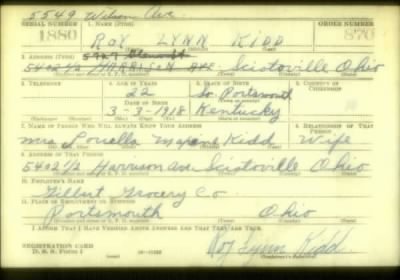 5549 Wilson Ave.
SERIAL NUMBER 1. NAME (Print) ORDER NUMBER
1880 ROY LYNN KIDD 870
5927 Glenwood
2. ADDRESS (Print)
5402 1/2 HARRISON AVE Sciotoville Ohio
3. TELEPHONE 4. AGE IN YEARS 5. PLACE OF BIRTH 6. COUNTRY OF CITIZENSHIP
22 So. Portsmouth
DATE OF BIRTH
3-3-1918 Kentucky
7. NAME OF PERSON WHO WILL ALWAYS KNOW YOUR ADDRESS 8. RELATIONSHIP OF THAT PERSON
Mrs Louella Maxine Kidd Wife
9. ADDRESS OF THAT PERSON
5402 1/2 Harrison Ave Sciotoville Ohio
10. EMPLOYER'S NAME
Gilbert Grocery Co
11. PLACE OF EMPLOYMENT OR BUSINESS
Portsmouth Ohio
I AFFIRM THAT I HAVE VERIFIED ABOVE ANSWERS AND THAT THEY ARE TRUE.
REGISTRATION CARD
D. S. S. Form 1
Roy Lynn Kidd